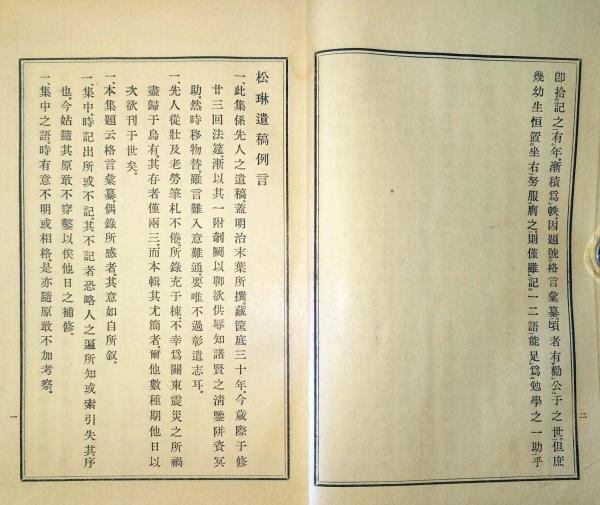 卽拾記之有年、漸積爲帙、因題號格言彙纂、頃者有勸公于之世、但庶
幾幼生恒置坐右努服膺之、則僅雖記一二語、能足爲勉學之一助乎
二
松琳遺稿例言
一、此集係先人之遺稿、蓋明治末葉所撰、藏筐底三十年、今歲際于修
廿三回法筵、漸以其一附剞劂、以聊欲供辱知諸賢之淸鑒、倂資冥
助、然時移物替、雖言難入意難通、要唯不過彰遺志耳、
一、先人從壯及老勞筆札不倦、所錄充于棟、不幸爲關東震災之所禍
盡歸于烏有、其存者僅兩三、而本輯其尤簡者、爾他數種期他日以
次欲刊于世矣、
一、本集題云格言彙纂、偶錄所感者、其意如自所叙、
一、集中、時記出所或不記、其不記者恐略人之遍所知或索引失其序
也、今姑隨其原敢不穿鑿以俟他日之補修、
一、集中之語、時有意不明或相格、是亦隨原敢不加考察、
一